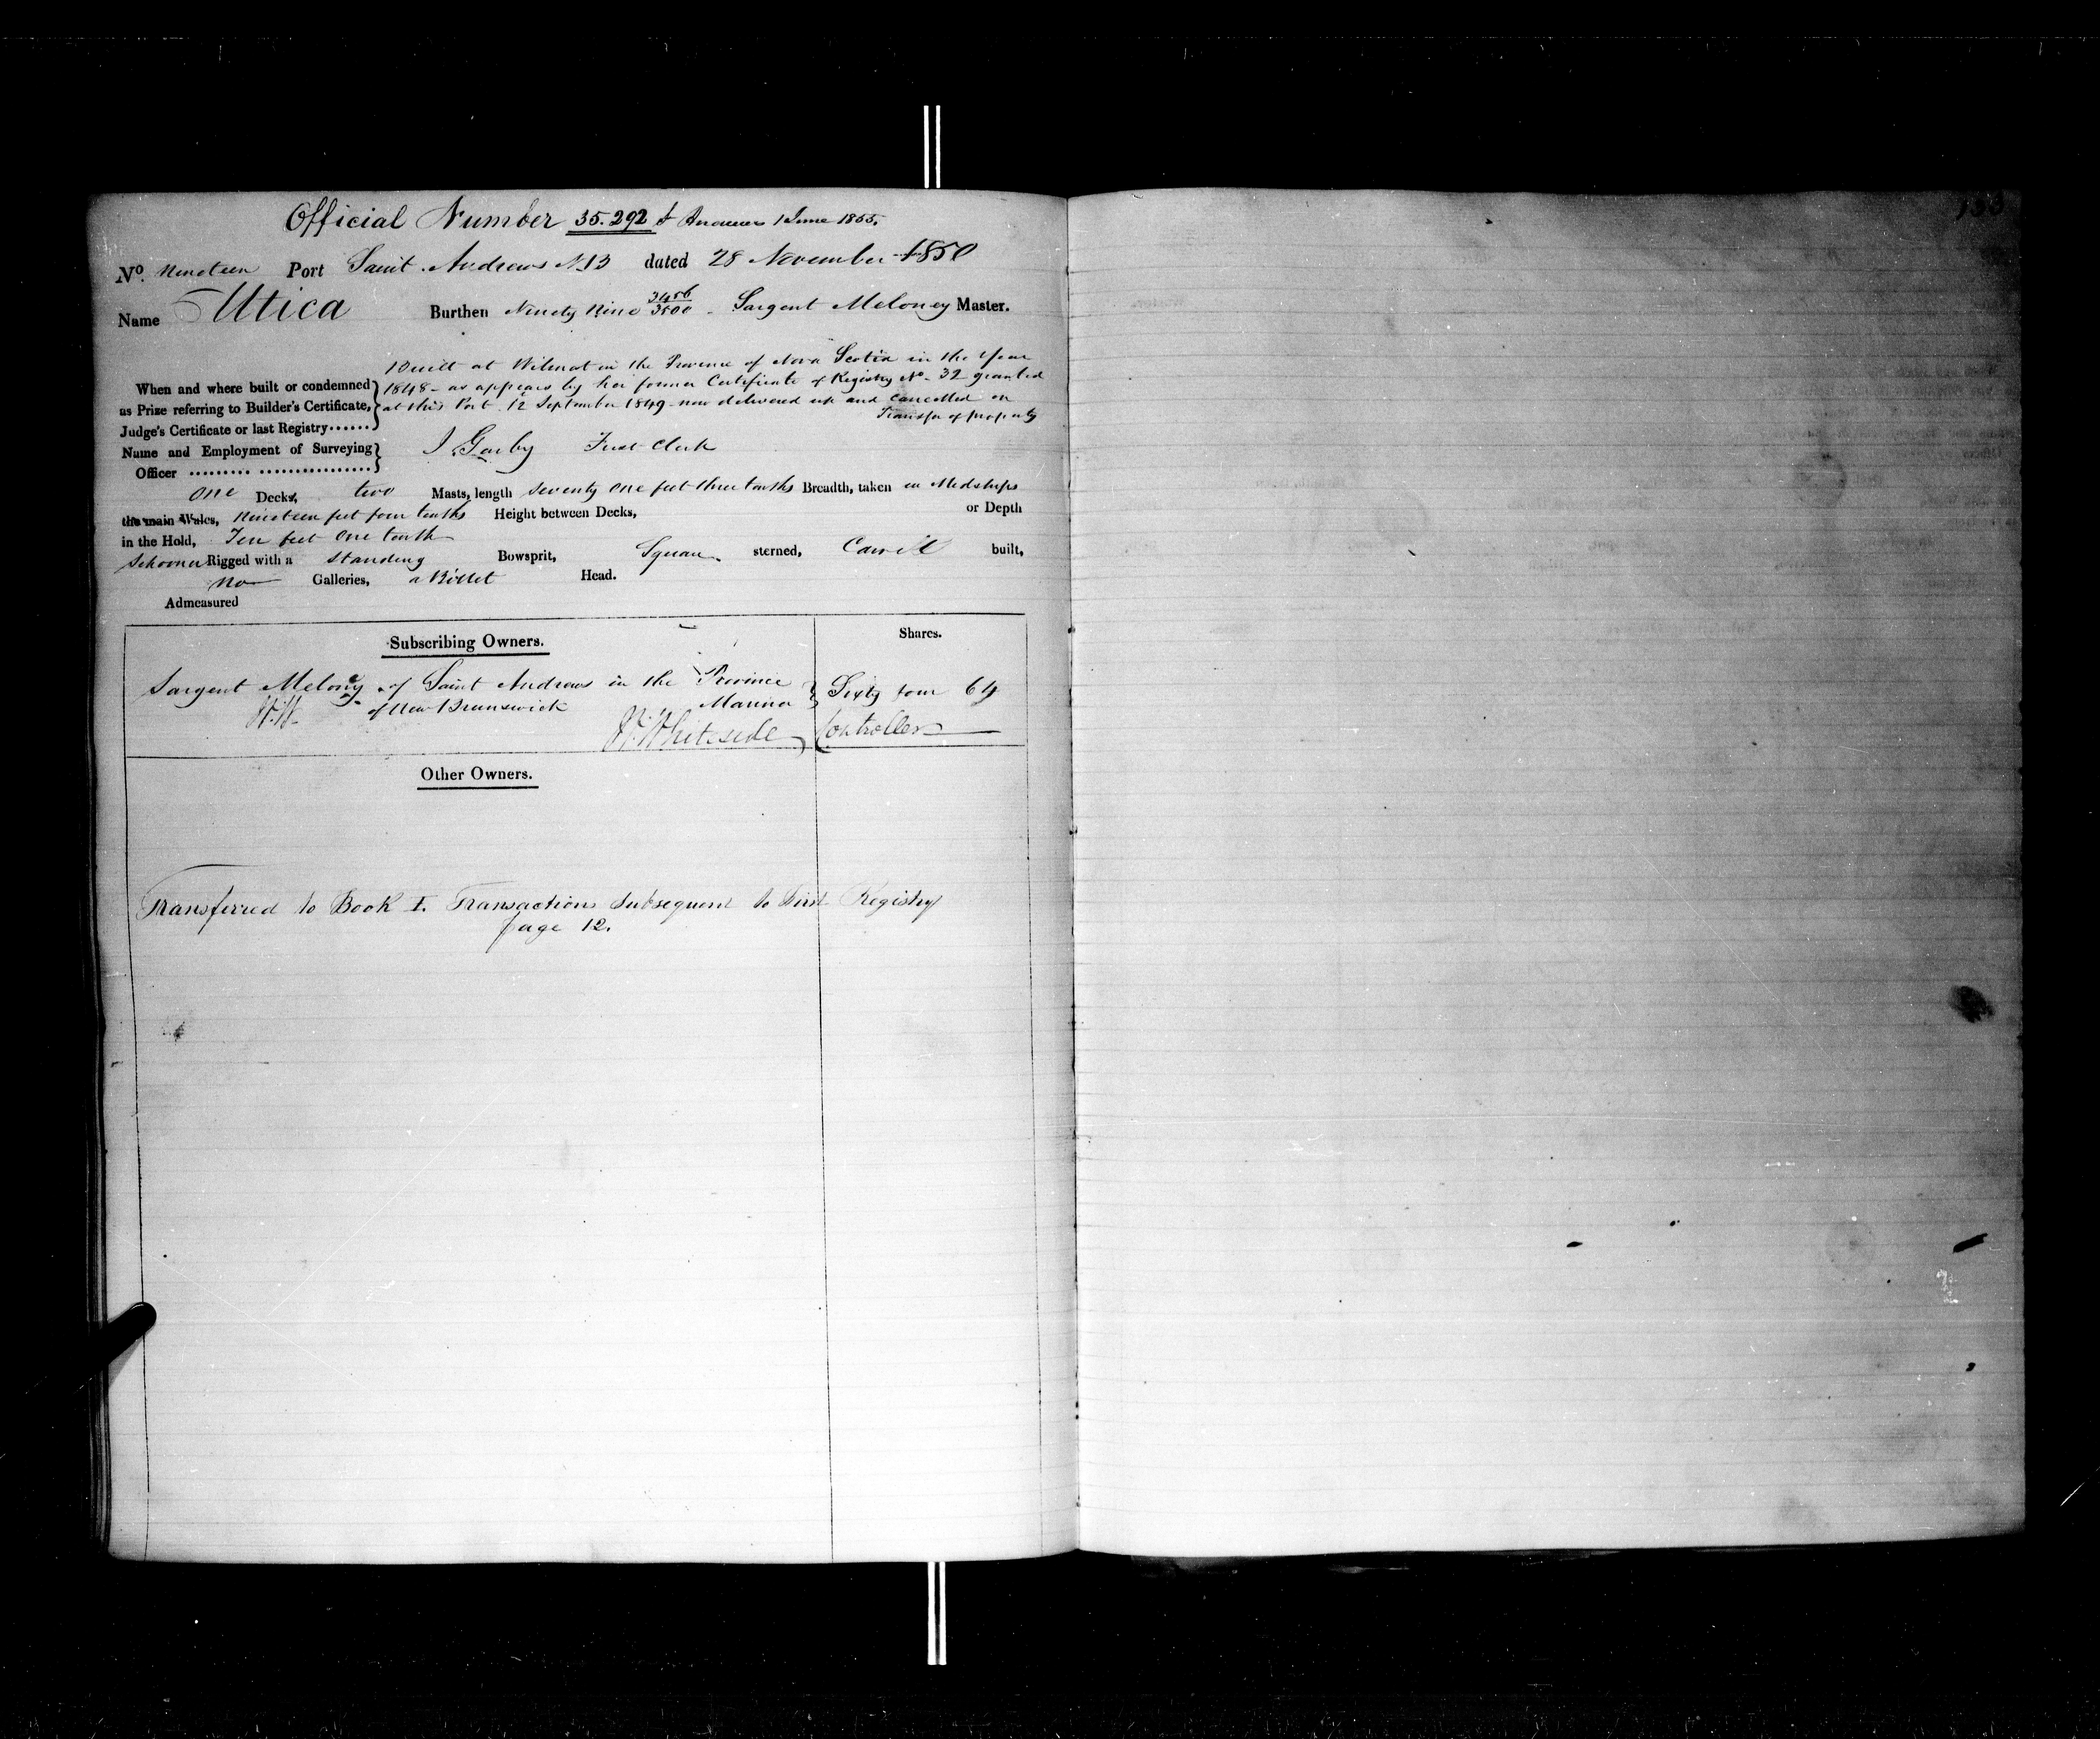 Official Number 35.292 St Andrews 1 June 1855.
No. Nineteen Port Saint Andrews N 13 dated 28 November 1850
Name Utica Burthen Ninety Nine 3456/3500 - Sargent Meloney Master.
Built at Wilmot in the Province of Nova Scotia in the Year
When and where built or condemned 1848 - as appears by her former Certificate of Registry No. 32 granted
as Prize referring to Builder's Certificate, at this Port 12 September 1849 - now delivered up and Cancelled on
Judge's Certificate or last Registry...... Transfer of property
Name and Employment of Surveying
Officer ......... ................ First Clerk
One Decks, two Masts, length Seventy One feet three tenths Breadth, taken in Midships
the main Wales, Nineteen feet four tenths Height between Decks, or Depth
in the Hold, Ten feet One tenth
Schooner Rigged with a Standing Bowsprit, Square sterned, Carvil built,
no Galleries, a Billet Head.
Admeasured
Subscribing Owners. Shares.
Sargent Meloney of Saint Andrews in the Province
of New Brunswick Marina Sixty four 64
W.W. W. Whiteside Controller
Other Owners.
Transferred to Book I. Transactions Subsequent to First Registry
page 12.